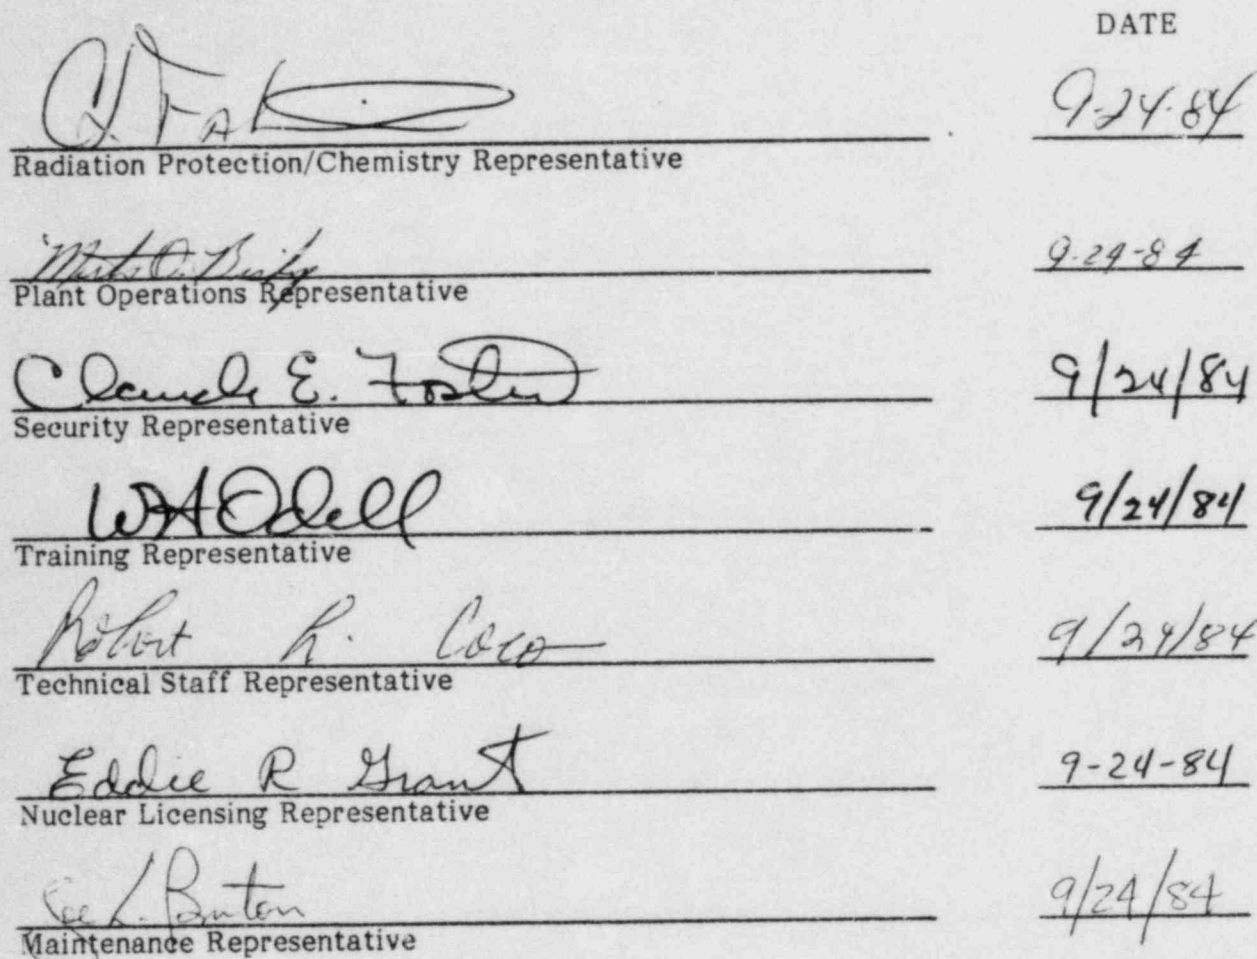 DATE
9-24-84
Radiation Protection/Chemistry Representative
9-24-84
Plant Operations Representative
Claude E. Foster 9/24/84
Security Representative
WA Odell 9/24/84
Training Representative
Robert R. Coco 9/24/84
Technical Staff Representative
Eddie R Grant 9-24-84
Nuclear Licensing Representative
L. 9/24/84
Maintenance Representative